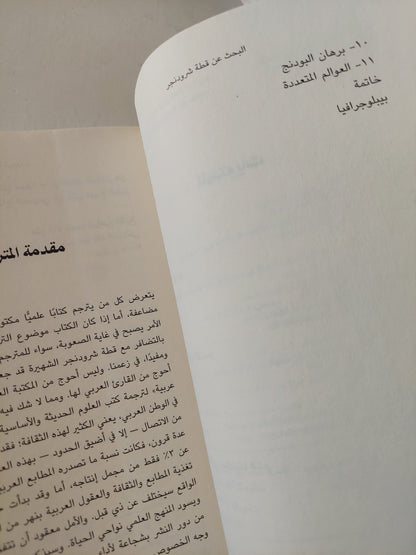 البحث عن قطة شرودنجر
١٠- برهان البودنج
١١- العوالم المتعددة
خاتمة
بيبلوجرافيا
مقدمة
يتعرض كل من يترجم كتابًا علميًا
مضاعفة، أما إذا كان الكتاب موضوع
الأمر يصبح في غاية الصعوبة، سواء للمترجم
بالتضافر مع قطة شرودنجر الشهيرة قد
ومفيدًا، في زعمنا. وليس أحوج من المكتبة
أحوج من القارئ العربي لها. ومما لا شك فيه
عربية، لترجمة كتب العلوم الحديثة والأساسية
في الوطن العربي، يعني الكثير لهذه الثقافة؛
من الاتصال – إلا في أضيق الحدود – بهذه
عدة قرون، فكانت نسبة ما تصدره المطابع
عن ٣٪ فقط من مجمل إنتاجه، أما وقد بدأت
تغذية المطابع والثقافة والعقول العربية بنهر من
الواقع سيختلف عن ذي قبل.
ويسود المنهج العلمي نواحي الحياة. والأمل معقود أن
من دور النشر بشجاعة
وجه الخصوص